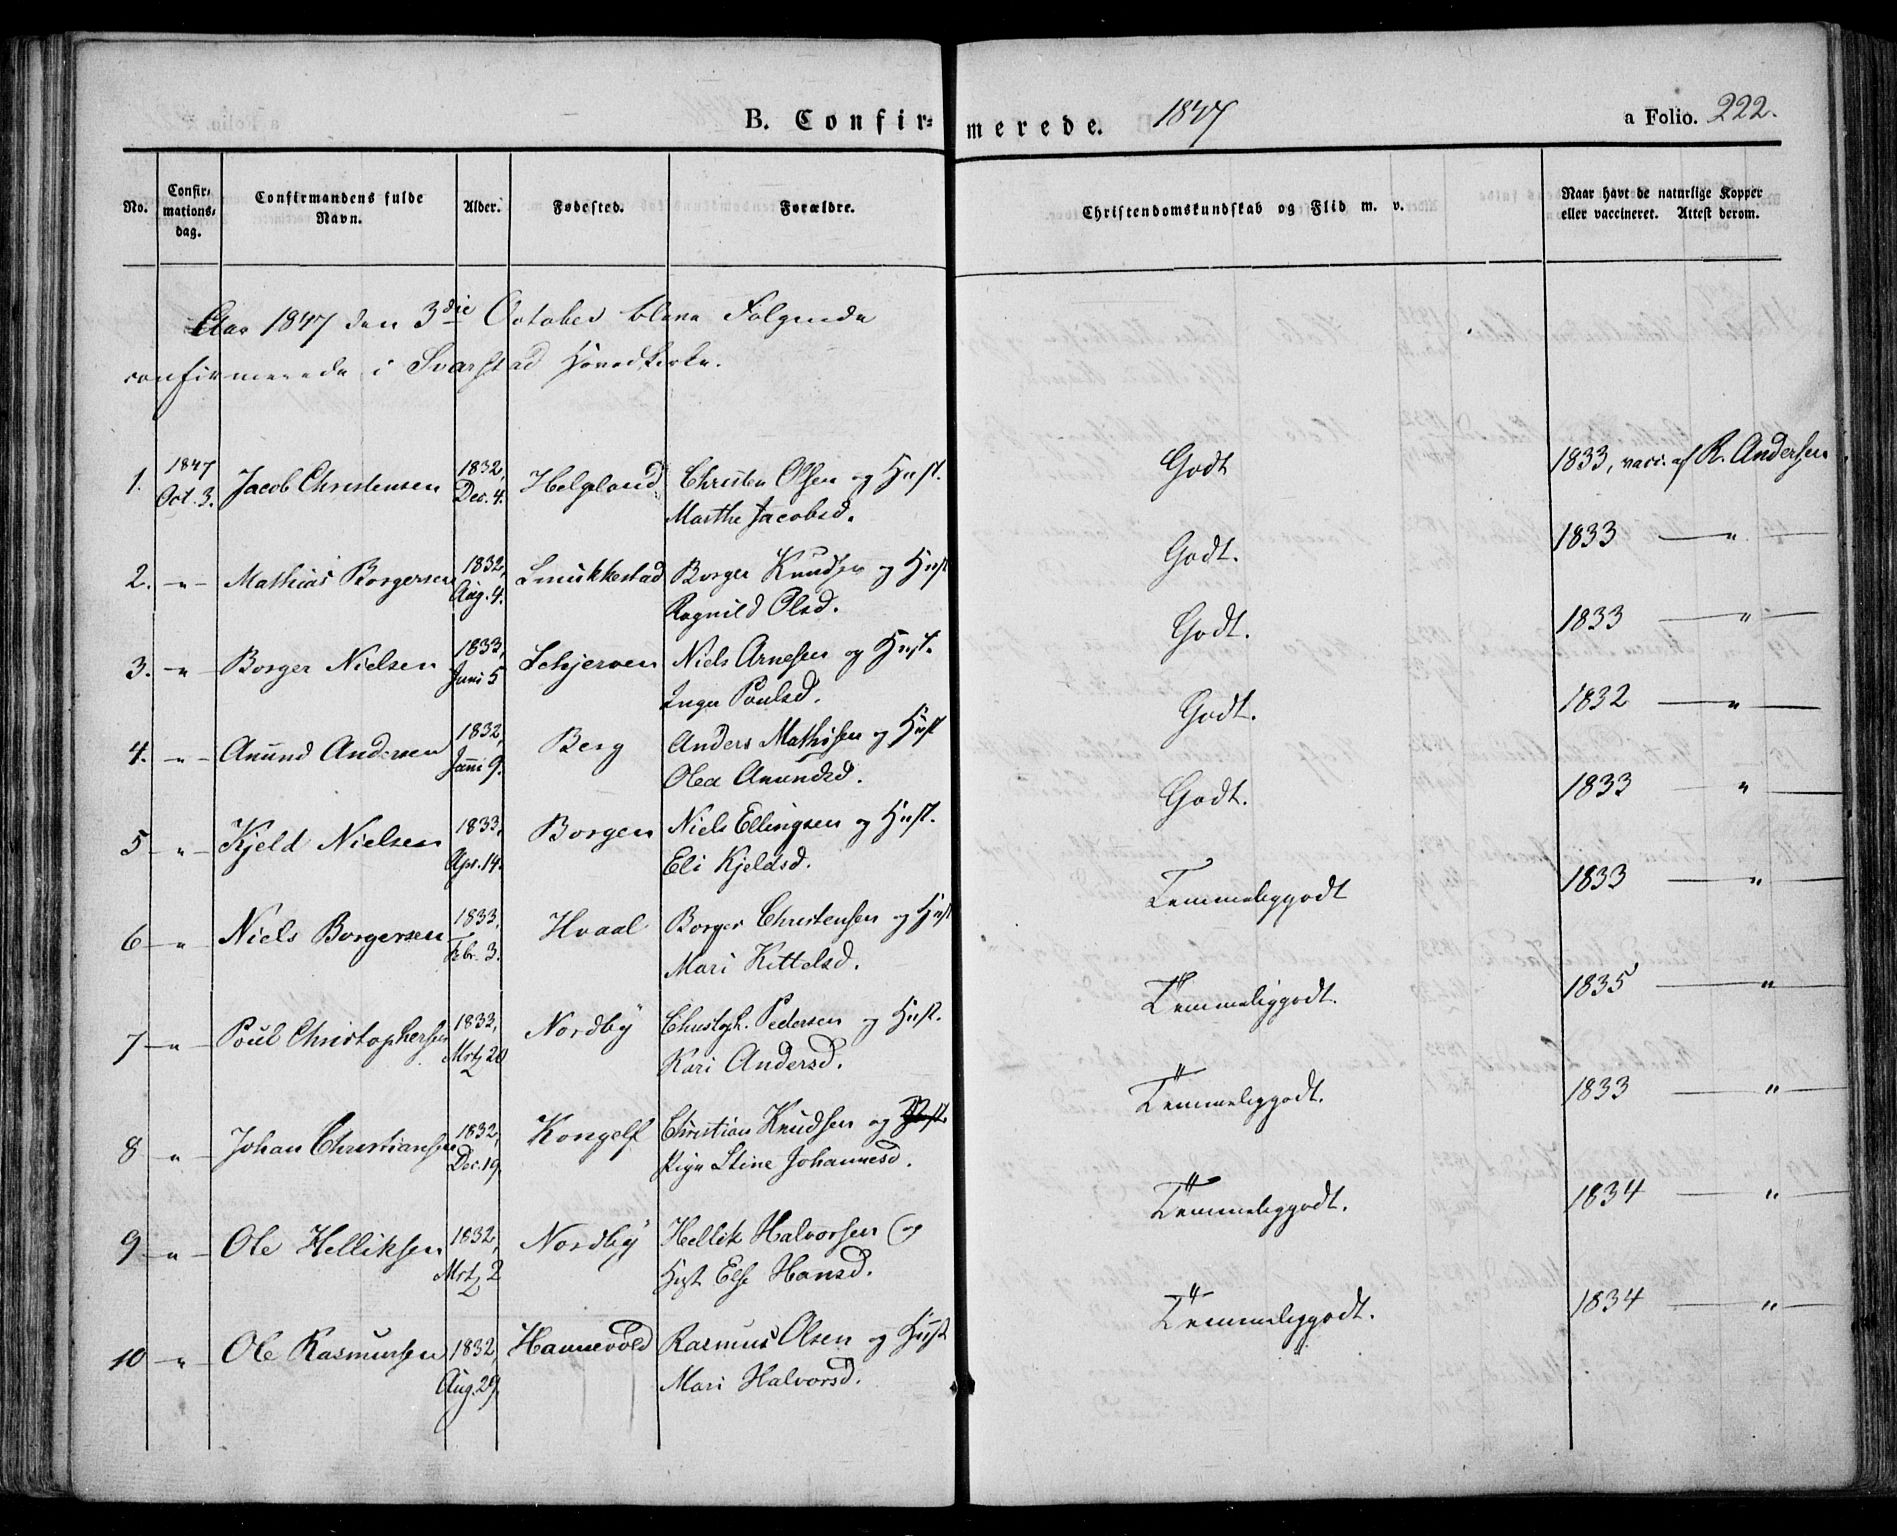 B. Confir= merede. 1847 a Folio. 222.
No. Confir= mations= dag. Confirmandens fulde Navn. Alder. Fødested. Forældre. Christendomskundskab og Flid m. v. Naar havt de naturlige Kopper eller vaccineret. Attest derom.
Aar 1847 den 3die October bleve Følgende
confirmerede i Svarstad Hovedkirke.
1. 1847 Oct. 3. Jacob Christensen 1832, Dec. 4. Helgeland Christen Olsen og Hust. Godt 1833, vacc. af R. Andersen
Marthe Jacobsd.
2. -"- Mathias Borgersen 1832, Aug. 4. Smukkestad Borger Knudsen og Hust Godt. 1833 — " —
Ragnild Olsd.
3. -"- Borger Nielsen 1833, Juni 5 Schjerven Niels Arnesen og Hust. Godt. 1833 — " —
Inger Poulsd.
4. -"- Anund Andersen 1832, Juni 9. Berg Anders Mathisen og Hust Godt. 1832 — " —
Olea Anundsd.
5 -"- Kjeld Nielsen 1833, Apr. 14. Borgen Niels Ellingsen og Hust. Godt. 1833 — " —
Eli Kjeldsd.
6 -"- Niels Borgersen 1833, Febr. 3. Hvaal Borger Christensen og Hust Temmeliggodt 1833 — " —
Mari Kittelsd.
7 -"- Poul Christophersen 1833, Mrtz 20 Nordby Christoph. Pedersen og Hust. Temmeliggodt. 1835 — " —
Kari Andersd.
8 " Johan Christiansen 1832, Dec. 19. Kongelf Christian Knudsen og Hust. Temmeliggodt. 1833 — "
Pige Stine Johannesd.
9 -"- Ole Helliksen 1832, Mrtz 2 Nordby Hellik Halvorsen og Temmeliggodt. 1834 — " —
Hust Else Hansd.
10 -"- Ole Rasmussen 1832, Aug. 29. Hannevold Rasmus Olsen og Hust Temmeliggodt. 1834 — " —
Mari Halvorsd.